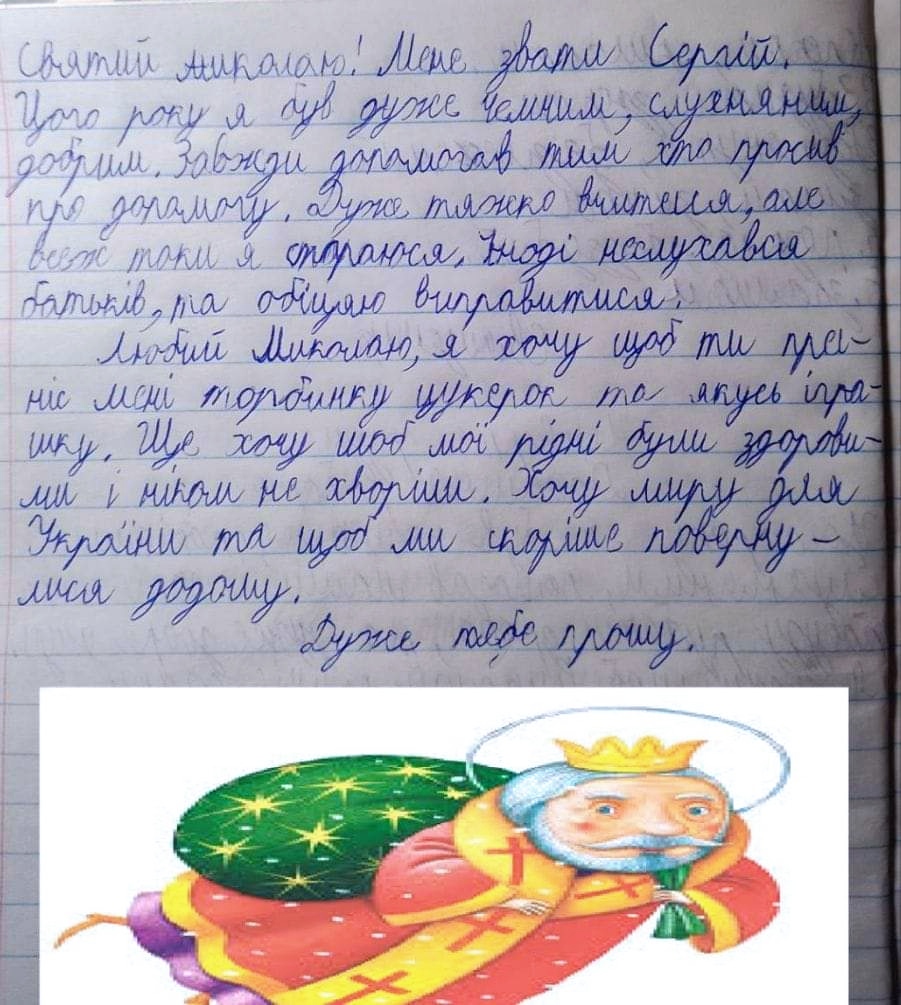 Святий миколаю! Мене звати Сергій.
Цого року я був дуже чемним, слухняним,
добрим. Завжди допомогав тим хто просив
про допомогу. Дуже тяжко вчитися, але
всеж таки я стораюся. Іноді неслухався
батьків, та обіцяю виправитися.
Любий Миколаю, я хочу щоб ти при-
ніс мені торбинку цукерок та якусь ігра-
шку. Ще хочу щоб мої рідні були здорови-
ми і ніколи не хворіли. Хочу миру для
України та щоб ми скоріше поверну-
лися додому.
Дуже тебе прошу.